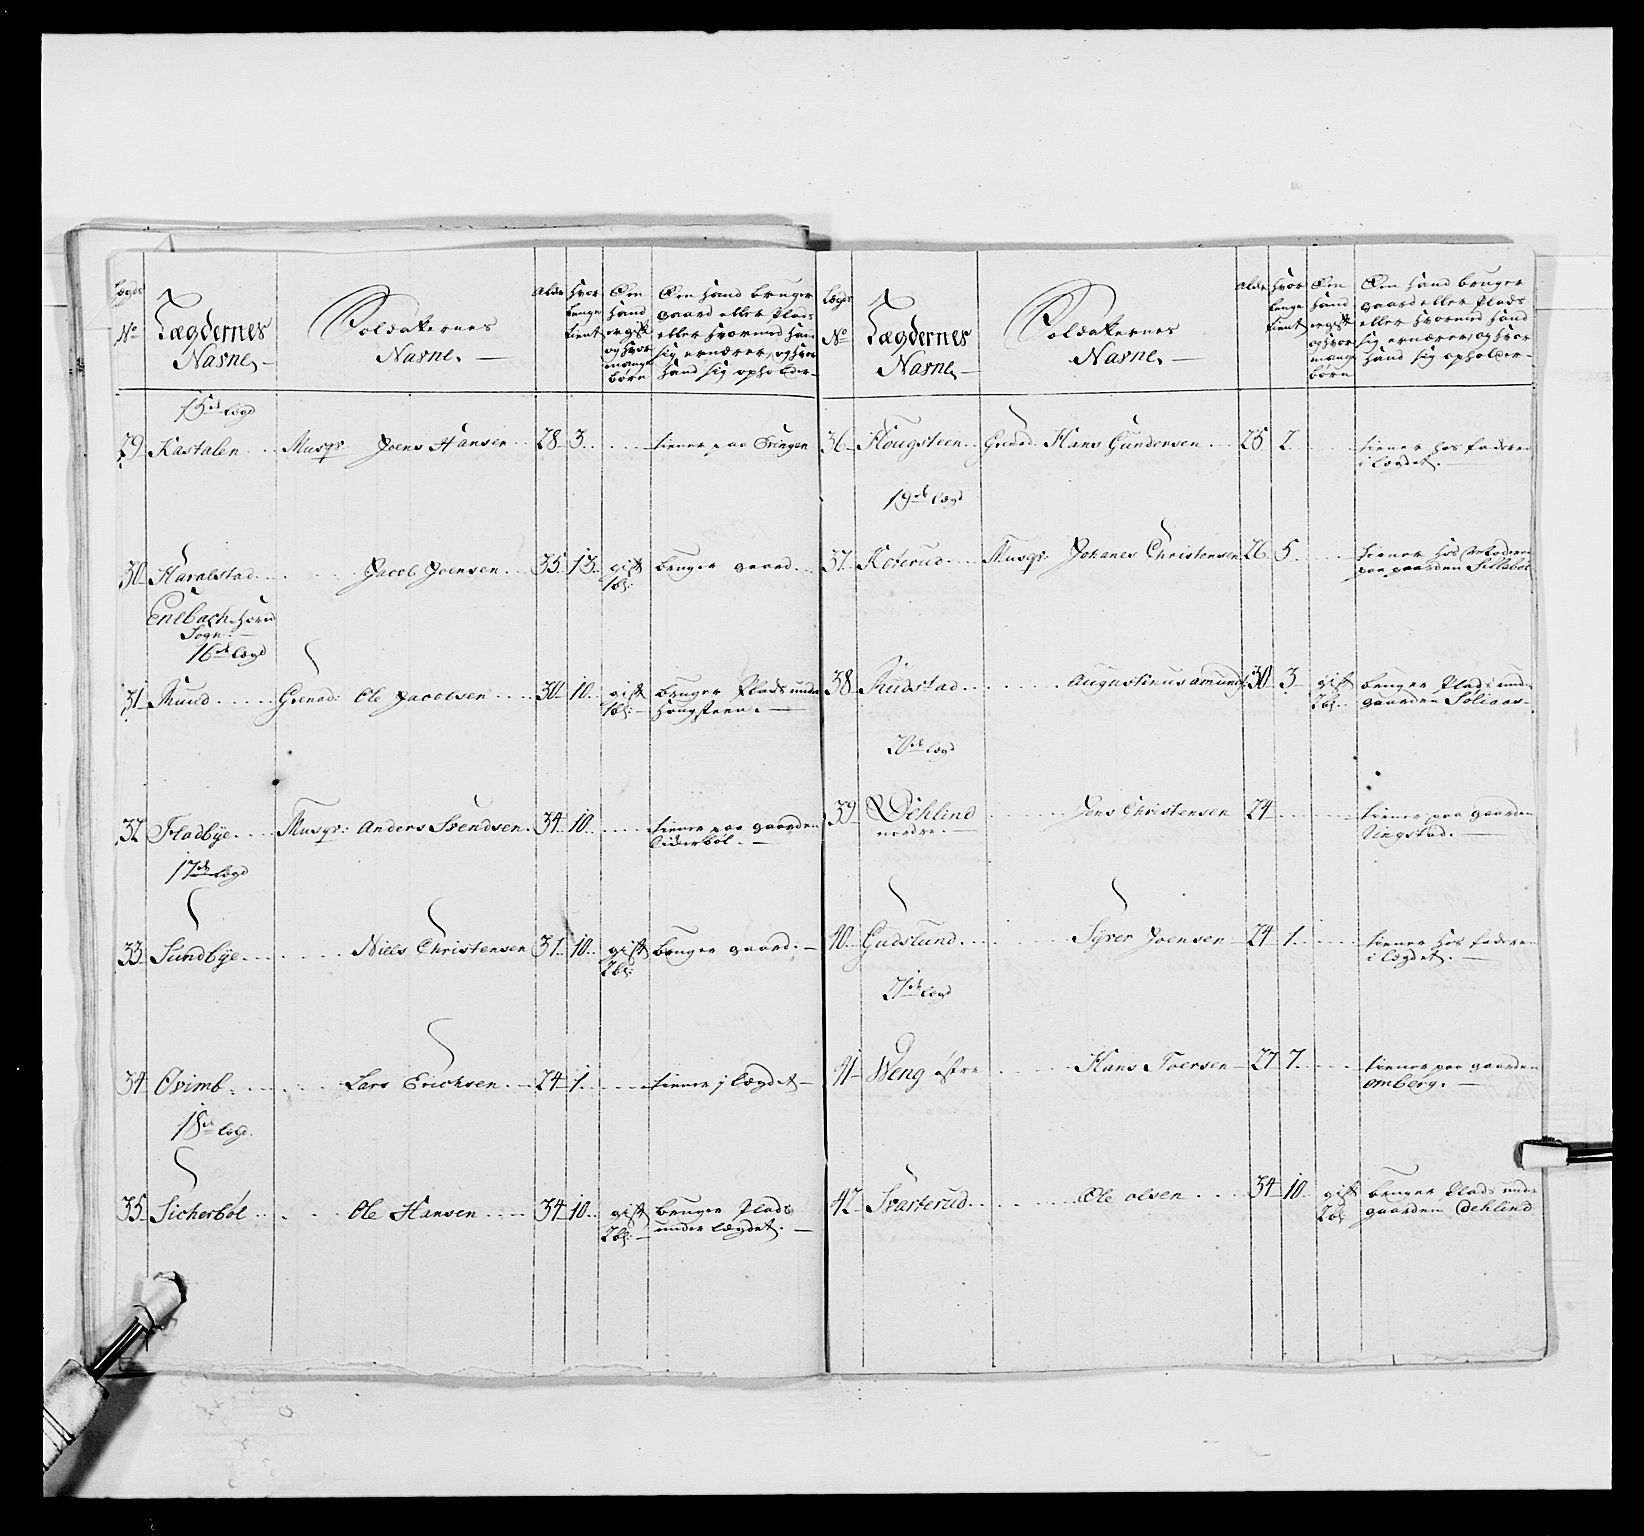 Lægds No
Lægdernes Nafne,
Soldaternes Nafne,
Alder
hvor lenge tient
Om hand er gift og hvor mange børn
Om hand bruger gaard eller Plads eller hvormed hand sig ernærer, og hvor hand sig opholder
15de Lægd
29 Kastalen Musqr: Joens Hansen 28 3 tiener paa Svingen
30 Haralstad Jacob Joensen 35 13 gift 1 b: bruger gaard
Enebach Hoved Sogn
16de Lægd
31 Ruud Grenad: Ole Jacobsen 30 10 gift 1 b: bruger Plads under Haugsteen
32 Fladbye Musqr: Anders Svendsen 34 10 tiener paa gaarden Siderbøl
17de Lægd
33 Sundbye Niels Christensen 31 10 gift 2 b: bruger gaard
34 Qvimb Lars Erichsen 24 1 tiener j lægdet
18de Lægd
35 Sicherbøl Ole Hansen 34 10 gift 2 b: bruger Plads under lægdet
Lægds No
Lægdernes Nafne,
Soldaternes Nafne,
Alder
hvor lenge tient
Om hand er gift og hvor mange børn
Om hand bruger gaard eller Plads eller hvormed hand sig ernærer, og hvor hand sig opholder
36 Hougsteen Grenad: Hans Gundersen 25 2 tiener hos faderen i lægdet
19de Lægd
37 Koterud Musqr: Johanes Christensen 26 5 tiener hos Moderen paa gaarden
38 Rudstad Augustinus Amunds: 30 3 gift 2 b: bruger Plads under gaarden Soliaas
20de Lægd
39 Dehlind nordre Jens Christensen 24 tiener paa gaarden Ringstad
40 Gudslund Syver Joensen 24 1 tiener hos faderen i lægdet
21de Lægd
41 Weng østre Hans Toersen 27 7 tiener paa gaarden Omberg
42 Svarterud Ole Olsen 34 10 gift 2 b: bruger Plads under gaarden Dehlind